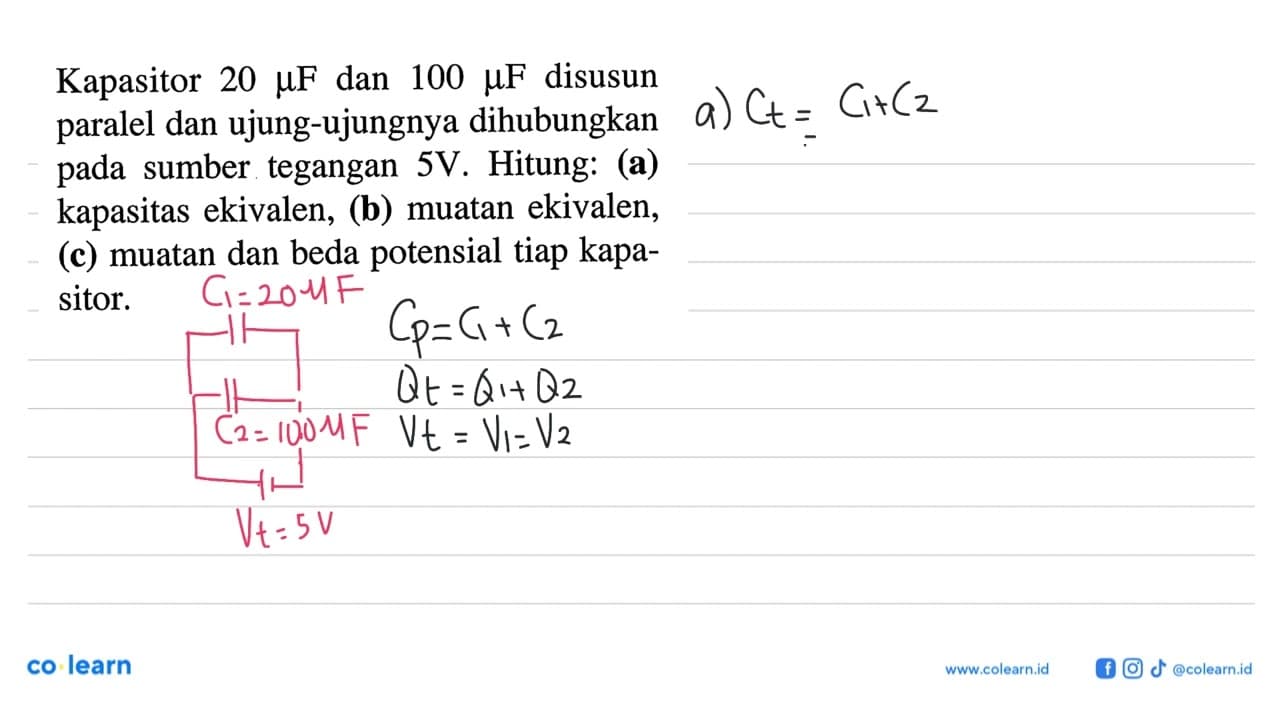 Kapasitor 20 μF dan 100 μF disusun
paralel dan ujung-ujungnya dihubungkan
pada sumber tegangan 5V. Hitung: (a)
kapasitas ekivalen, (b) muatan ekivalen,
(c) muatan dan beda potensial tiap kapa-
sitor.
a) Ct = C1+C2
C1=20μF
Cp=C1+C2
Qt=Q1+Q2
C2=100μF
Vt=V1=V2
Vt=5V
co learn
www.colearn.id
@colearn.id